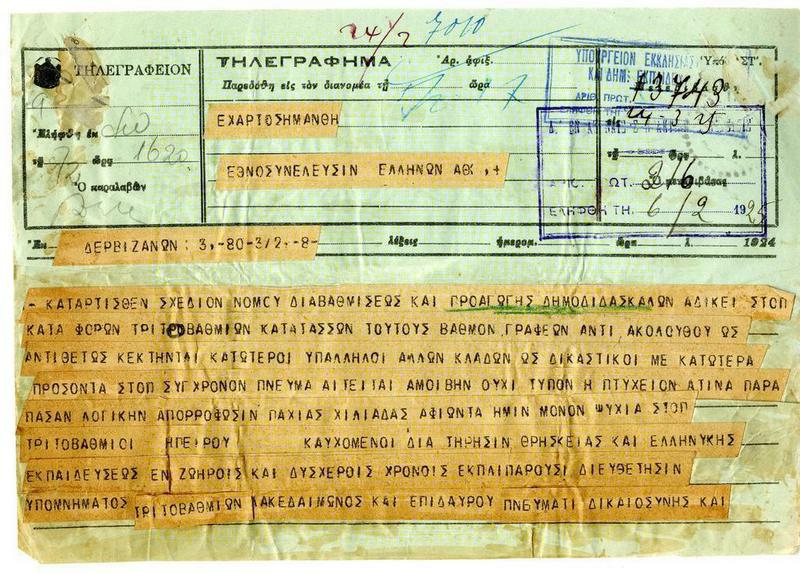 24/2 7010
ΤΗΛΕΓΡΑΦΕΙΟΝ
ΤΗΛΕΓΡΑΦΗΜΑ Ἀρ. ἀφιξ.
Παρεδόθη εἰς τὸν διανομέα τῇ ὥρᾳ
ΥΠΟΥΡΓΕΙΟΝ ΕΚΚΛΗΣΙΑΣ
ΚΑΙ ΔΗΜ. ΕΚΠΑΙΔ
ΑΡΙΘ. ΠΡΩΤ. 13743
Ὑπὸ ΣΤ'.
Ἐλήφθη ἐκ
τῇ ὥρᾳ 1620
Ὁ παραλαβὼν
ΕΧΑΡΤΟΣΗΜΑΝΘΗ
ΕΘΝΟΣΥΝΕΛΕΥΣΙΝ ΕΛΛΗΝΩΝ ΑΘ
ΕΛΗΦΘΗ ΤΗ. 6/2 1925
Ἐκ ΔΕΡΒΙΖΑΝΩΝ: 3,-80-3/2,-8- λέξεις ἡμερομ. ὥρα λ. 1924
- ΚΑΤΑΡΤΙΣΘΕΝ ΣΧΕΔΙΟΝ ΝΟΜΟΥ ΔΙΑΒΑΘΜΙΣΕΩΣ ΚΑΙ ΠΡΟΑΓΩΓΗΣ ΔΗΜΟΔΙΔΑΣΚΑΛΩΝ ΑΔΙΚΕΙ ΣΤΟΠ
ΚΑΤΑ ΦΟΡΩΝ ΤΡΙΤΟΒΑΘΜΙΩΝ ΚΑΤΑΤΑΣΣΩΝ ΤΟΥΤΟΥΣ ΒΑΘΜΟΝ ΓΡΑΦΕΩΝ ΑΝΤΙ ΑΚΟΛΟΥΘΟΥ ΩΣ
ΑΝΤΙΘΕΤΩΣ ΚΕΚΤΗΝΤΑΙ ΚΑΤΩΤΕΡΟΙ ΥΠΑΛΛΗΛΟΙ ΑΛΛΩΝ ΚΛΑΔΩΝ ΩΣ ΔΙΚΑΣΤΙΚΟΙ ΜΕ ΚΑΤΩΤΕΡΑ
ΠΡΟΣΟΝΤΑ ΣΤΟΠ ΣΥΓΧΡΟΝΟΝ ΠΝΕΥΜΑ ΑΙΤΕΙΤΑΙ ΑΜΟΙΒΗΝ ΟΥΧΙ ΤΥΠΟΝ Η ΠΤΥΧΕΙΟΝ ΑΤΙΝΑ ΠΑΡΑ
ΠΑΣΑΝ ΛΟΓΙΚΗΝ ΑΠΟΡΡΟΦΩΣΙΝ ΠΑΧΙΑΣ ΧΙΛΙΑΔΑΣ ΑΦΙΩΝΤΑ ΗΜΙΝ ΜΟΝΟΝ ΨΥΧΙΑ ΣΤΟΠ
ΤΡΙΤΟΒΑΘΜΙΟΙ ΗΠΕΙΡΟΥ ΚΑΥΧΟΜΕΝΟΙ ΔΙΑ ΤΗΡΗΣΙΝ ΘΡΗΣΚΕΙΑΣ ΚΑΙ ΕΛΛΗΝΥΚΗΣ
ΕΚΠΑΙΔΕΥΣΕΩΣ ΕΝ ΖΩΗΡΟΙΣ ΚΑΙ ΔΥΣΧΕΡΟΙΣ ΧΡΟΝΟΙΣ ΕΚΠΛΙΠΑΡΟΥΣΙ ΔΙΕΥΘΕΤΗΣΙΝ
ΥΠΟΜΝΗΜΑΤΟΣ ΤΡΙΤΟΒΑΘΜΙΩΝ ΛΑΚΕΔΑΙΜΩΝΟΣ ΚΑΙ ΕΠΙΔΑΥΡΟΥ ΠΝΕΥΜΑΤΙ ΔΙΚΑΙΟΣΥΝΗΣ ΚΑΙ